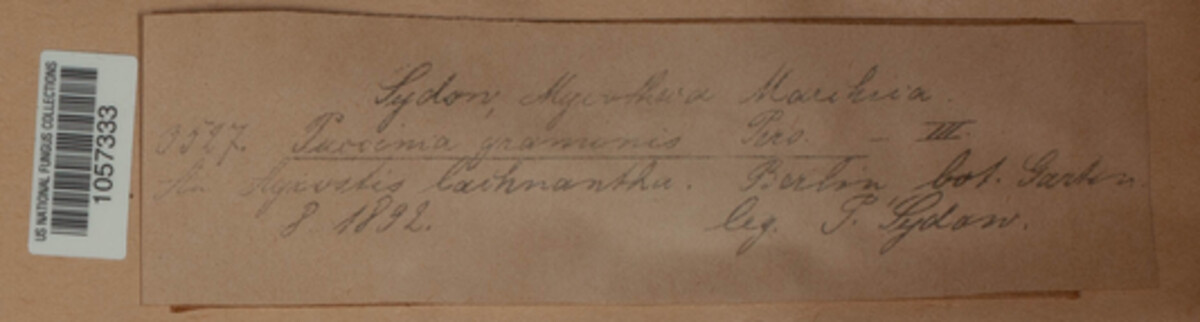 US NATIONAL FUNGUS COLLECTIONS
1057333
Sydow, Mycotheca Marchica.
3527. Puccinia graminis Pers. – III.
An Agrostis lachnantha. Berlin, bot. Garten.
8 1892. leg. P. Sydow.